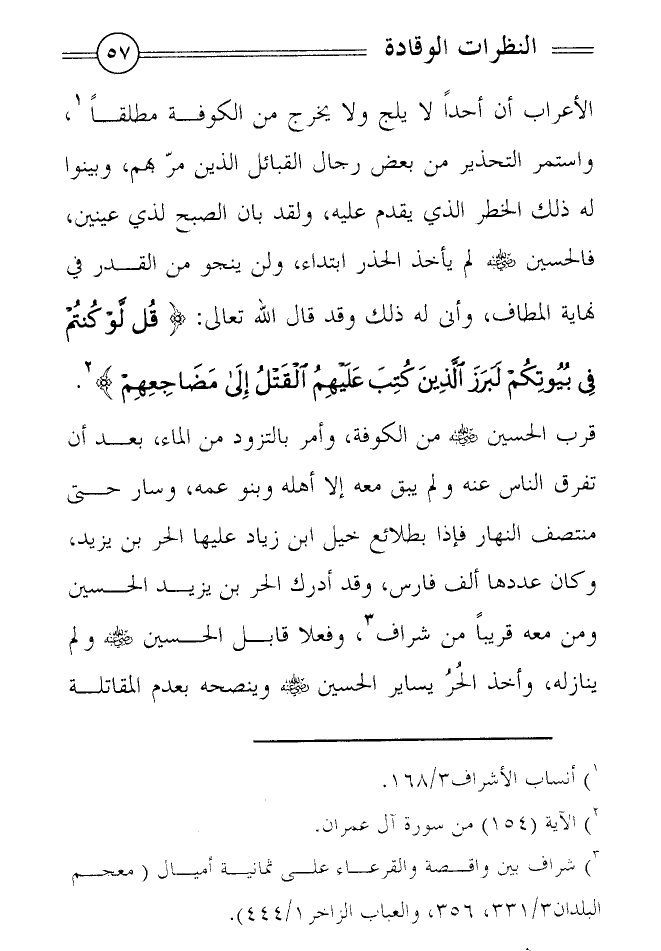 النظرات الوقادة
٥٧
الأعراب أن أحداً لا يلج ولا يخرج من الكوفة مطلقاً ١،
واستمر التحذير من بعض رجال القبائل الذين مرّ بهم، وبينوا
له ذلك الخطر الذي يقدم عليه، ولقد بان الصبح لذي عينين،
فالحسين ﷺ لم يأخذ الحذر ابتداء، ولن ينجو من القدر في
نهاية المطاف، وأنى له ذلك وقد قال الله تعالى: ﴿ قُل لَّوْ كُنتُمْ
فِي بُيُوتِكُمْ لَبَرَزَ ٱلَّذِينَ كُتِبَ عَلَيْهِمُ ٱلْقَتْلُ إِلَىٰ مَضَاجِعِهِمْ ﴾ ٢.
قرب الحسين من الكوفة، وأمر بالتزود من الماء، بعد أن
تفرق الناس عنه ولم يبق معه إلا أهله وبنو عمه، وسار حتى
منتصف النهار فإذا بطلائع خيل ابن زياد عليها الحر بن يزيد،
وكان عددها ألف فارس، وقد أدرك الحر بن يزيد الحسين
ومن معه قريباً من شراف ٣، وفعلا قابل الحسين ولم
ينازله، وأخذ الحُرُ يساير الحسين وينصحه بعدم المقاتلة
١) أنساب الأشراف٣/١٦٨.
٢) الآية (١٥٤) من سورة آل عمران.
٣) شراف بين واقصة والقرعاء على ثمانية أميال ( معجم
البلدان٣/٣٣١، ٣٥٦، والعباب الزاخر١/٤٤٤).